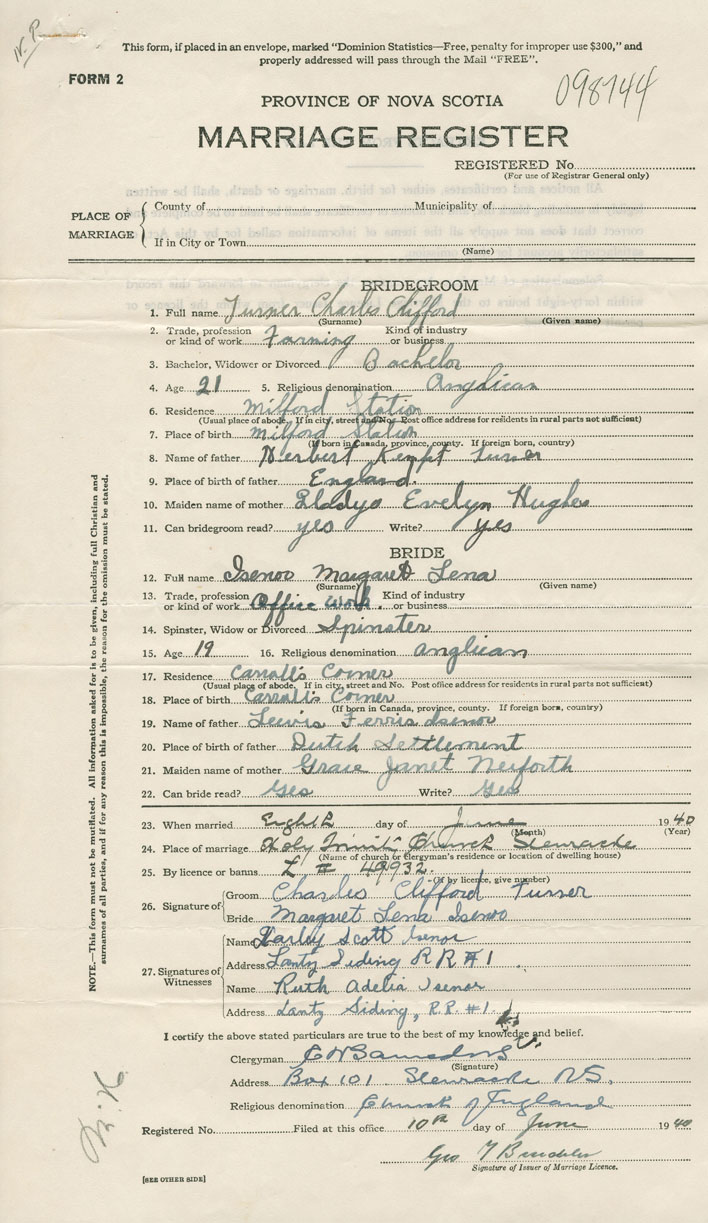 N. P.
This form, if placed in an envelope, marked "Dominion Statistics—Free, penalty for improper use $300," and
properly addressed will pass through the Mail "FREE".
FORM 2
098744
PROVINCE OF NOVA SCOTIA
MARRIAGE REGISTER
REGISTERED No.
(For use of Registrar General only)
PLACE OF MARRIAGE
County of Municipality of
If in City or Town
(Name)
BRIDEGROOM
1. Full name Turner Charles Clifford
(Surname) (Given name)
2. Trade, profession or kind of work Farming Kind of industry or business
3. Bachelor, Widower or Divorced Bachelor
4. Age 21 5. Religious denomination Anglican
6. Residence Milford Station
(Usual place of abode. If in city, street and No. Post office address for residents in rural parts not sufficient)
7. Place of birth Milford Station
(If born in Canada, province, county. If foreign born, country)
8. Name of father Herbert Kempt Turner
9. Place of birth of father England.
10. Maiden name of mother Gladys Evelyn Hughes
11. Can bridegroom read? yes Write? yes
BRIDE
12. Full name Isenor Margaret Lena
(Surname) (Given name)
13. Trade, profession or kind of work Office work. Kind of industry or business
14. Spinster, Widow or Divorced Spinster
15. Age 19 16. Religious denomination Anglican
17. Residence Carroll's Corner
(Usual place of abode. If in city, street and No. Post office address for residents in rural parts not sufficient)
18. Place of birth Carroll's Corner
(If born in Canada, province, county. If foreign born, country)
19. Name of father Lewis Ferris Isenor
20. Place of birth of father Dutch Settlement
21. Maiden name of mother Grace Janet Neiforth
22. Can bride read? Yes Write? Yes
23. When married Eighth day of June 1940
(Month) (Year)
24. Place of marriage Holy Trinity Church
(Name of church or Clergyman's residence or location of dwelling house)
25. By licence or banns L # 49932.
(If by licence, give number)
26. Signature of
Groom Charles Clifford Turner
Bride Margaret Lena Isenor
27. Signatures of Witnesses
Name Harley Scott Isenor
Address Lantz Siding R R #1
Name Ruth Adelia Isenor
Address Lantz Siding, R.R. #1.
I certify the above stated particulars are true to the best of my knowledge and belief.
Clergyman
(Signature)
Address Box 101 N.S.
Religious denomination Church of England
Registered No. Filed at this office 10th day of June 1940
Geo
Signature of Issuer of Marriage Licence.
[SEE OTHER SIDE]
NOTE.—This form must not be mutilated. All information asked for is to be given, including full Christian and
surnames of all parties, and if for any reason this is impossible, the reason for the omission must be stated.